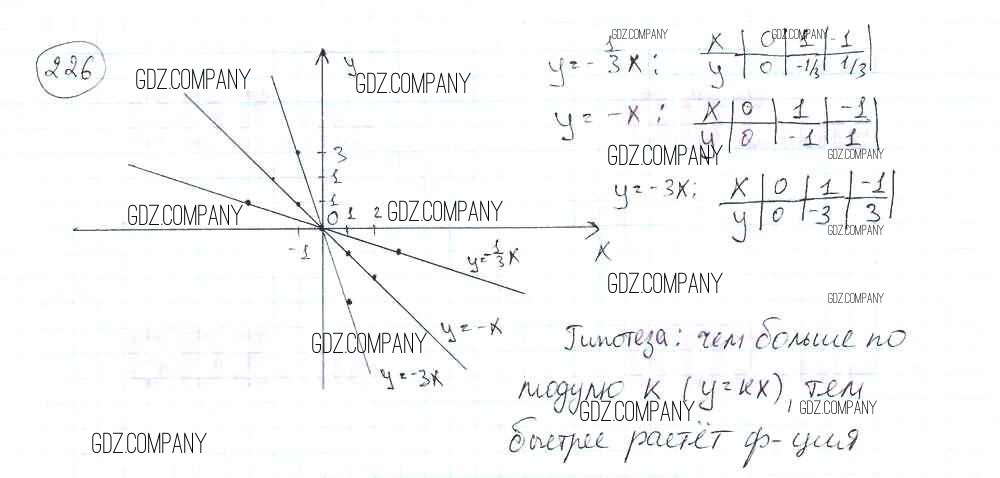 226
GDZ.COMPANY
GDZ.COMPANY
GDZ.COMPANY
GDZ.COMPANY
y = -1/3 x : x | 0 | 1 | -1
y | 0 | -1/3 | 1/3
y = -x : x | 0 | 1 | -1
y | 0 | -1 | 1
GDZ.COMPANY
GDZ.COMPANY
y = -3x : x | 0 | 1 | -1
y | 0 | -3 | 3
GDZ.COMPANY
y
3
1
1
GDZ.COMPANY
0 1 2
GDZ.COMPANY
-1
x
y=-1/3 x
GDZ.COMPANY
GDZ.COMPANY
y=-x
GDZ.COMPANY
y=-3x
Гипотеза: чем больше по
модулю k (y=kx), тем
GDZ.COMPANY
GDZ.COMPANY
быстрее растёт ф-ция
GDZ.COMPANY